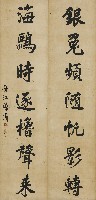 銀兔頻隨帆影轉
海鷗時逐櫓聲来